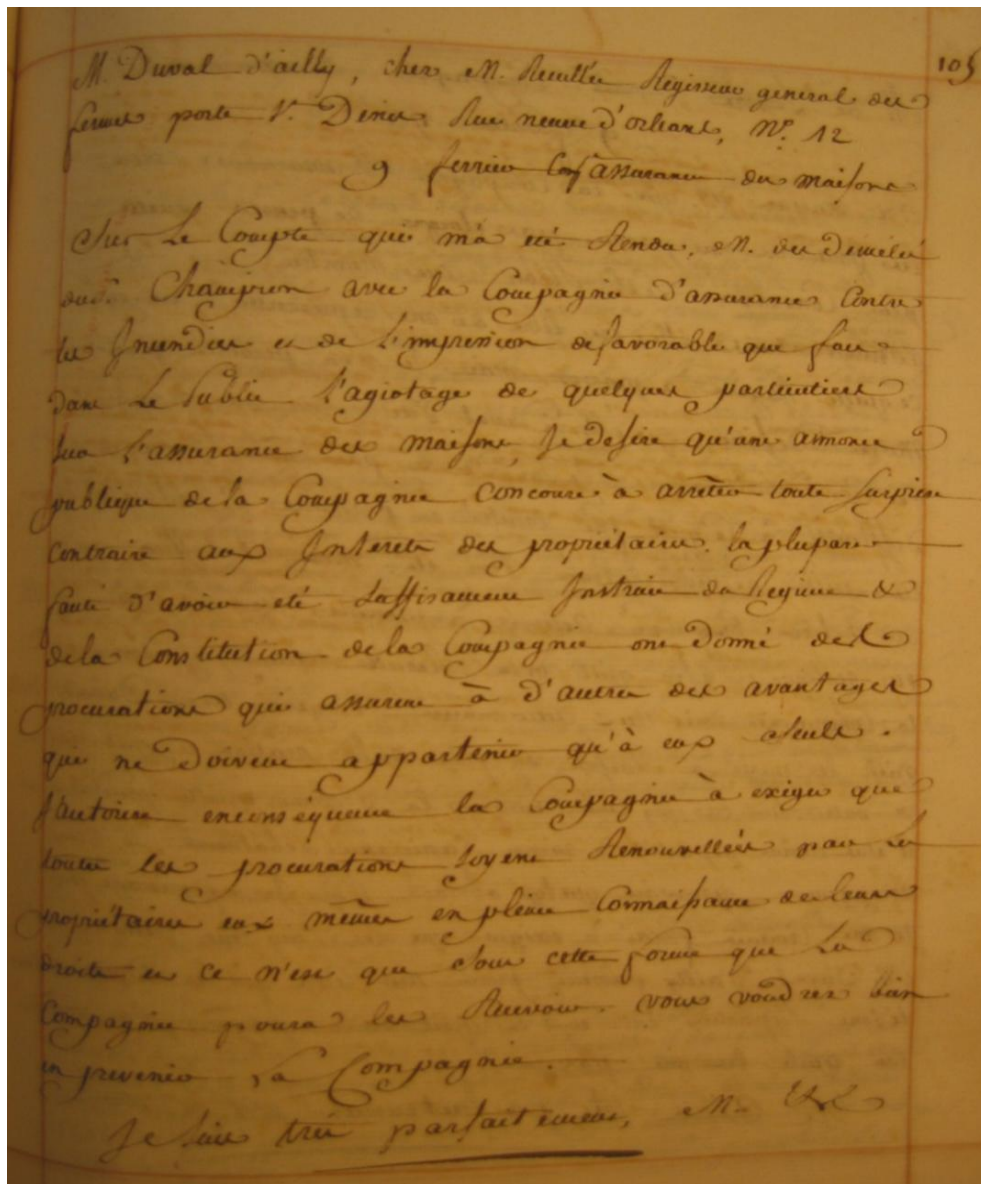 105
M. Duval d'ailly, chez M. Reuillée Regisseur general des
fermes porte St. Denis Rue neuve d'orleans, N.° 12
9 fevrier Comp. assurance des maisons
Sur Le Compte qui m'a eté Rendu, M. du Demelé
du S. Champion avec la Compagnie d'assurance Contre
les Incendies et de L'impression defavorable que fait
dans Le Public l'agiotage de quelques particuliers
sur L'assurance des maisons, Je desire qu'une annonce
publique de la Compagnie concoure à arrêter toute surprise
contraire aux Interets des proprietaires. la plupart
faute d'avoir eté suffisament Instruits du Regime &
de la Constitution de la Compagnie ont Donné des
procurations qui assurent à d'autres des avantages
qui ne Doivent appartenir qu'à eux seuls.
J'autorise en conséquence la Compagnie à exiger que
toutes les procurations soyent Renouvellées par Les
propriétaires eux mêmes en pleine Connaissance de leurs
droits et ce n'est que sous cette forme que La
Compagnie poura les Recevoir. vous voudrez bien
en prevenir La Compagnie.
Je suis trés parfaitement, M. &c